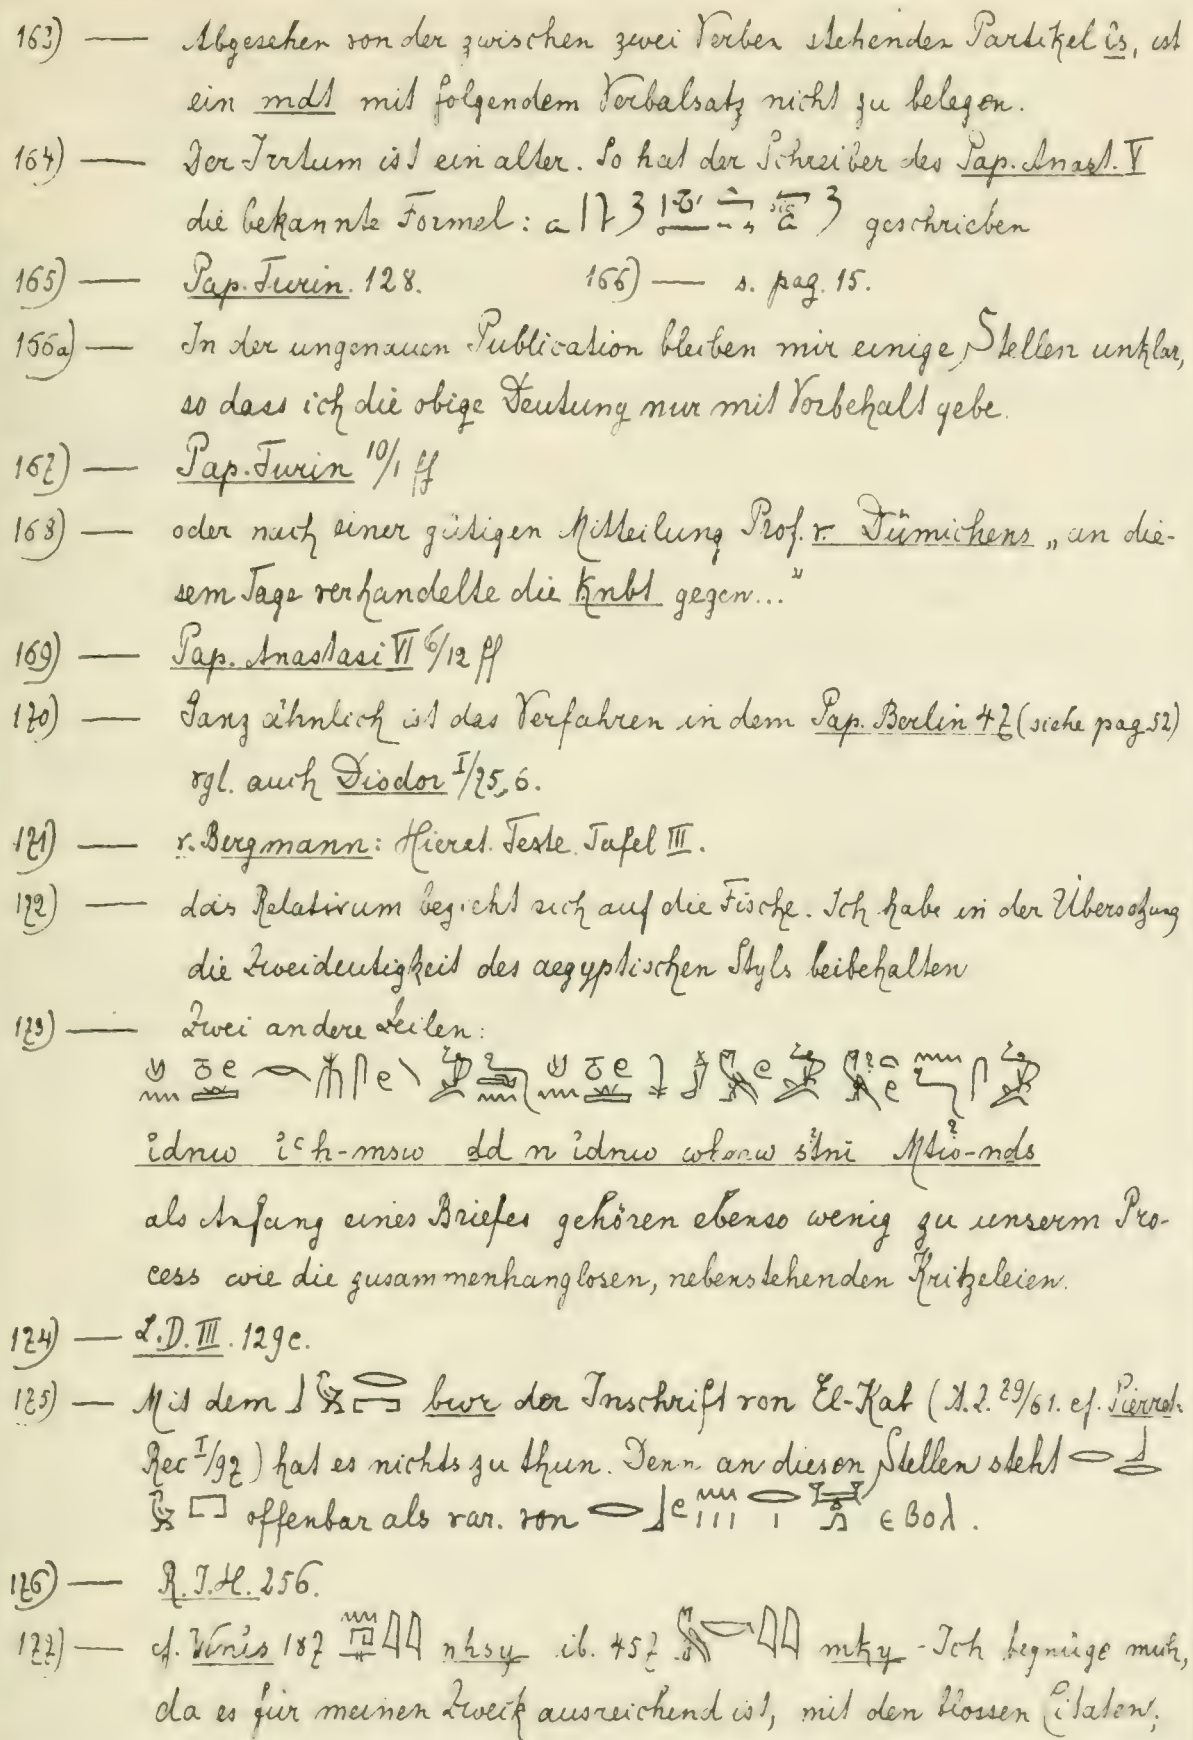 163) — Abgesehen von der zwischen zwei Verben stehenden Partikel is, ist
ein mdt mit folgendem Verbalsatz nicht zu belegen.
164) — Der Irrtum ist ein alter. So hat der Schreiber des Pap. Anast. V
die bekannte Formel: geschrieben
165) — Pap. Turin. 128. 166) — s. pag. 15.
166a) — In der ungenauen Publication bleiben mir einige Stellen unklar,
so dass ich die obige Deutung nur mit Vorbehalt gebe.
167) — Pap. Turin 10/1 ff
168) — oder nach einer gütigen Mitteilung Prof. v. Dümichens „an die-
sem Tage verhandelte die knbt gegen..."
169) — Pap. Anastasi VI 6/12 ff
170) — Ganz ähnlich ist das Verfahren in dem Pap. Berlin 47 (siehe pag 52)
vgl. auch Diodor I/75,6.
171) — v. Bergmann: Hierat. Texte Tafel III.
172) — das Relativum bezieht sich auf die Fische. Ich habe in der Übersetzung
die Zweideutigkeit des aegyptischen Styls beibehalten
173) — Zwei andere Zeilen:
idnw iʿh-msw dd n idnw stni Mtw-nds
als Anfang eines Briefes gehören ebenso wenig zu unserm Pro-
cess wie die zusammenhanglosen, nebenstehenden Kritzeleien.
174) — L.D. III. 129c.
175) — Mit dem bwr der Inschrift von El-Kab (A.Z. 79/61. cf. Pierret.
Rec I/97) hat es nichts zu thun. Denn an diesen Stellen steht
offenbar als var. von ⲉⲃⲟⲗ.
176) — R.I.H. 256.
177) — cf. Unis 187 nhsy ib. 457 mky - Ich begnüge mich,
da es für meinen Zweck ausreichend ist, mit den blossen Citaten,